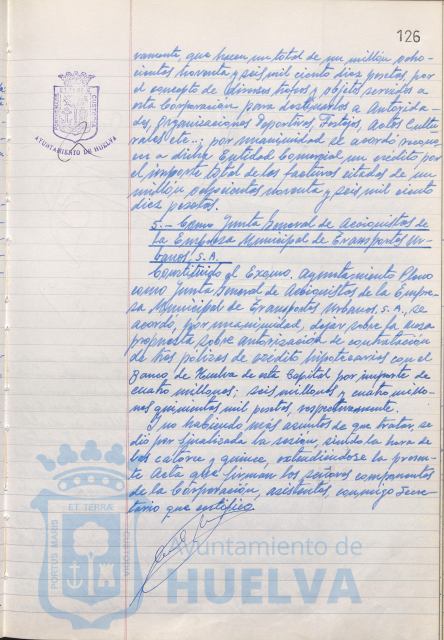 126
ramente, que hacen un total de un millón ocho-
cientas noventa y seis mil ciento diez pesetas, por
el concepto de diversos trofeos y objetos servidos a
esta Corporación para destinarlos a Autorida-
des, Organizaciones Deportivas, Festejos, Actos Cultu-
rales etc..., por unanimidad se acordó recono-
cer a dicha Entidad Comercial un crédito por
el importe total de las facturas citadas de un
millón ochocientas noventa y seis mil ciento
diez pesetas.
5.- Como Junta General de Accionistas de
la Empresa Municipal de Transportes Ur-
banos, S.A.
Constituido el Excmo. Ayuntamiento Pleno
como Junta General de Accionistas de la Empre-
sa Municipal de Transportes Urbanos, S.A., se
acordó, por unanimidad, dejar sobre la mesa
propuesta sobre autorización de contratación
de tres pólizas de crédito hipotecarios con el
Banco de Huelva de esta Capital por importe de
cuatro millones; seis millones y cuatro millo-
nes quinientas mil pesetas, respectivamente.
Y no habiendo más asuntos de que tratar, se
dió por finalizada la sesión, siendo la hora de
las catorce y quince, extendiéndose la presen-
te Acta que firman los señores componentes
de la Corporación, asistentes, conmigo Secre-
tario que certifico.
AYUNTAMIENTO DE HUELVA
PORTUS MARIS
ET TERRÆ
CUSTODIA
Ayuntamiento de
HUELVA